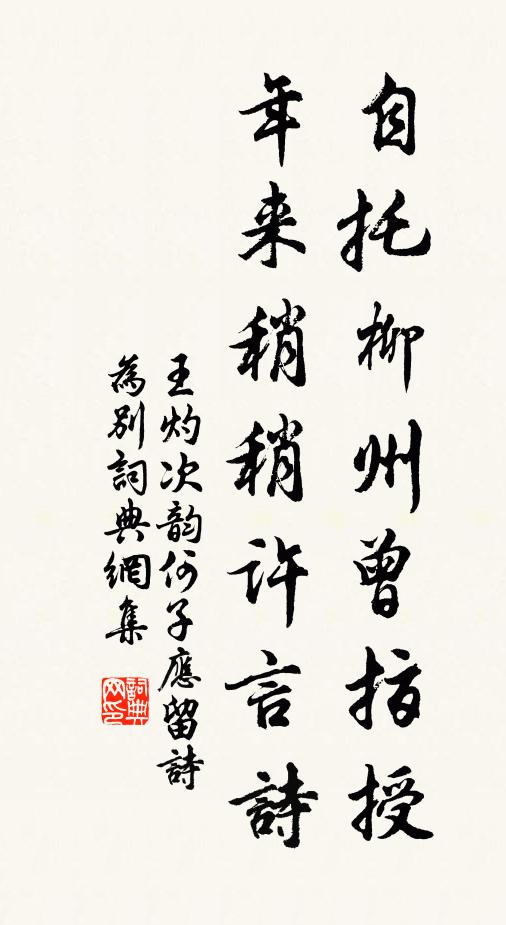 自托柳州曾指授
年来稍稍許言詩
王灼次韵何子應留詩
為别詞典網集
詞典
网印